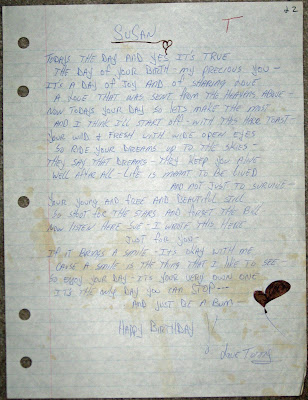 #2
T
SUSAN
TODAYS THE DAY AND YES IT'S TRUE
THE DAY OF YOUR BIRTH - MY PRECIOUS YOU -
IT'S A DAY OF JOY AND OF SHARING LOVE
A LOVE THAT WAS SENT FROM THE HEAVENS ABOVE -
NOW TODAYS YOUR DAY SO LET'S MAKE THE MOST
AND I THINK I'LL START OFF - WITH THIS HERE TOAST
YOUR WILD & FRESH WITH WIDE OPEN EYES
SO RIDE YOUR DREAMS UP TO THE SKIES -
THEY SAY THAT DREAMS - THEY KEEP YOU ALIVE
WELL AFTER ALL - LIFE IS MEANT TO BE LIVED
AND NOT JUST TO SURVIVE -
YOUR YOUNG AND FREE AND BEAUTIFUL STILL
SO SHOOT FOR THE STARS AND FORGET THE BILL
NOW LISTEN HERE SUE - I WROTE THIS HERE
JUST FOR YOU -
IF IT BRINGS A SMILE - IT'S OKAY WITH ME
CAUSE A SMILE IS THE THING THAT I LIKE TO SEE -
SO ENJOY YOUR DAY - IT'S YOUR VERY OWN ONE
IT'S THE ONLY DAY YOU CAN STOP --
AND JUST BE A BUM
HAPPY BIRTHDAY
LOVE